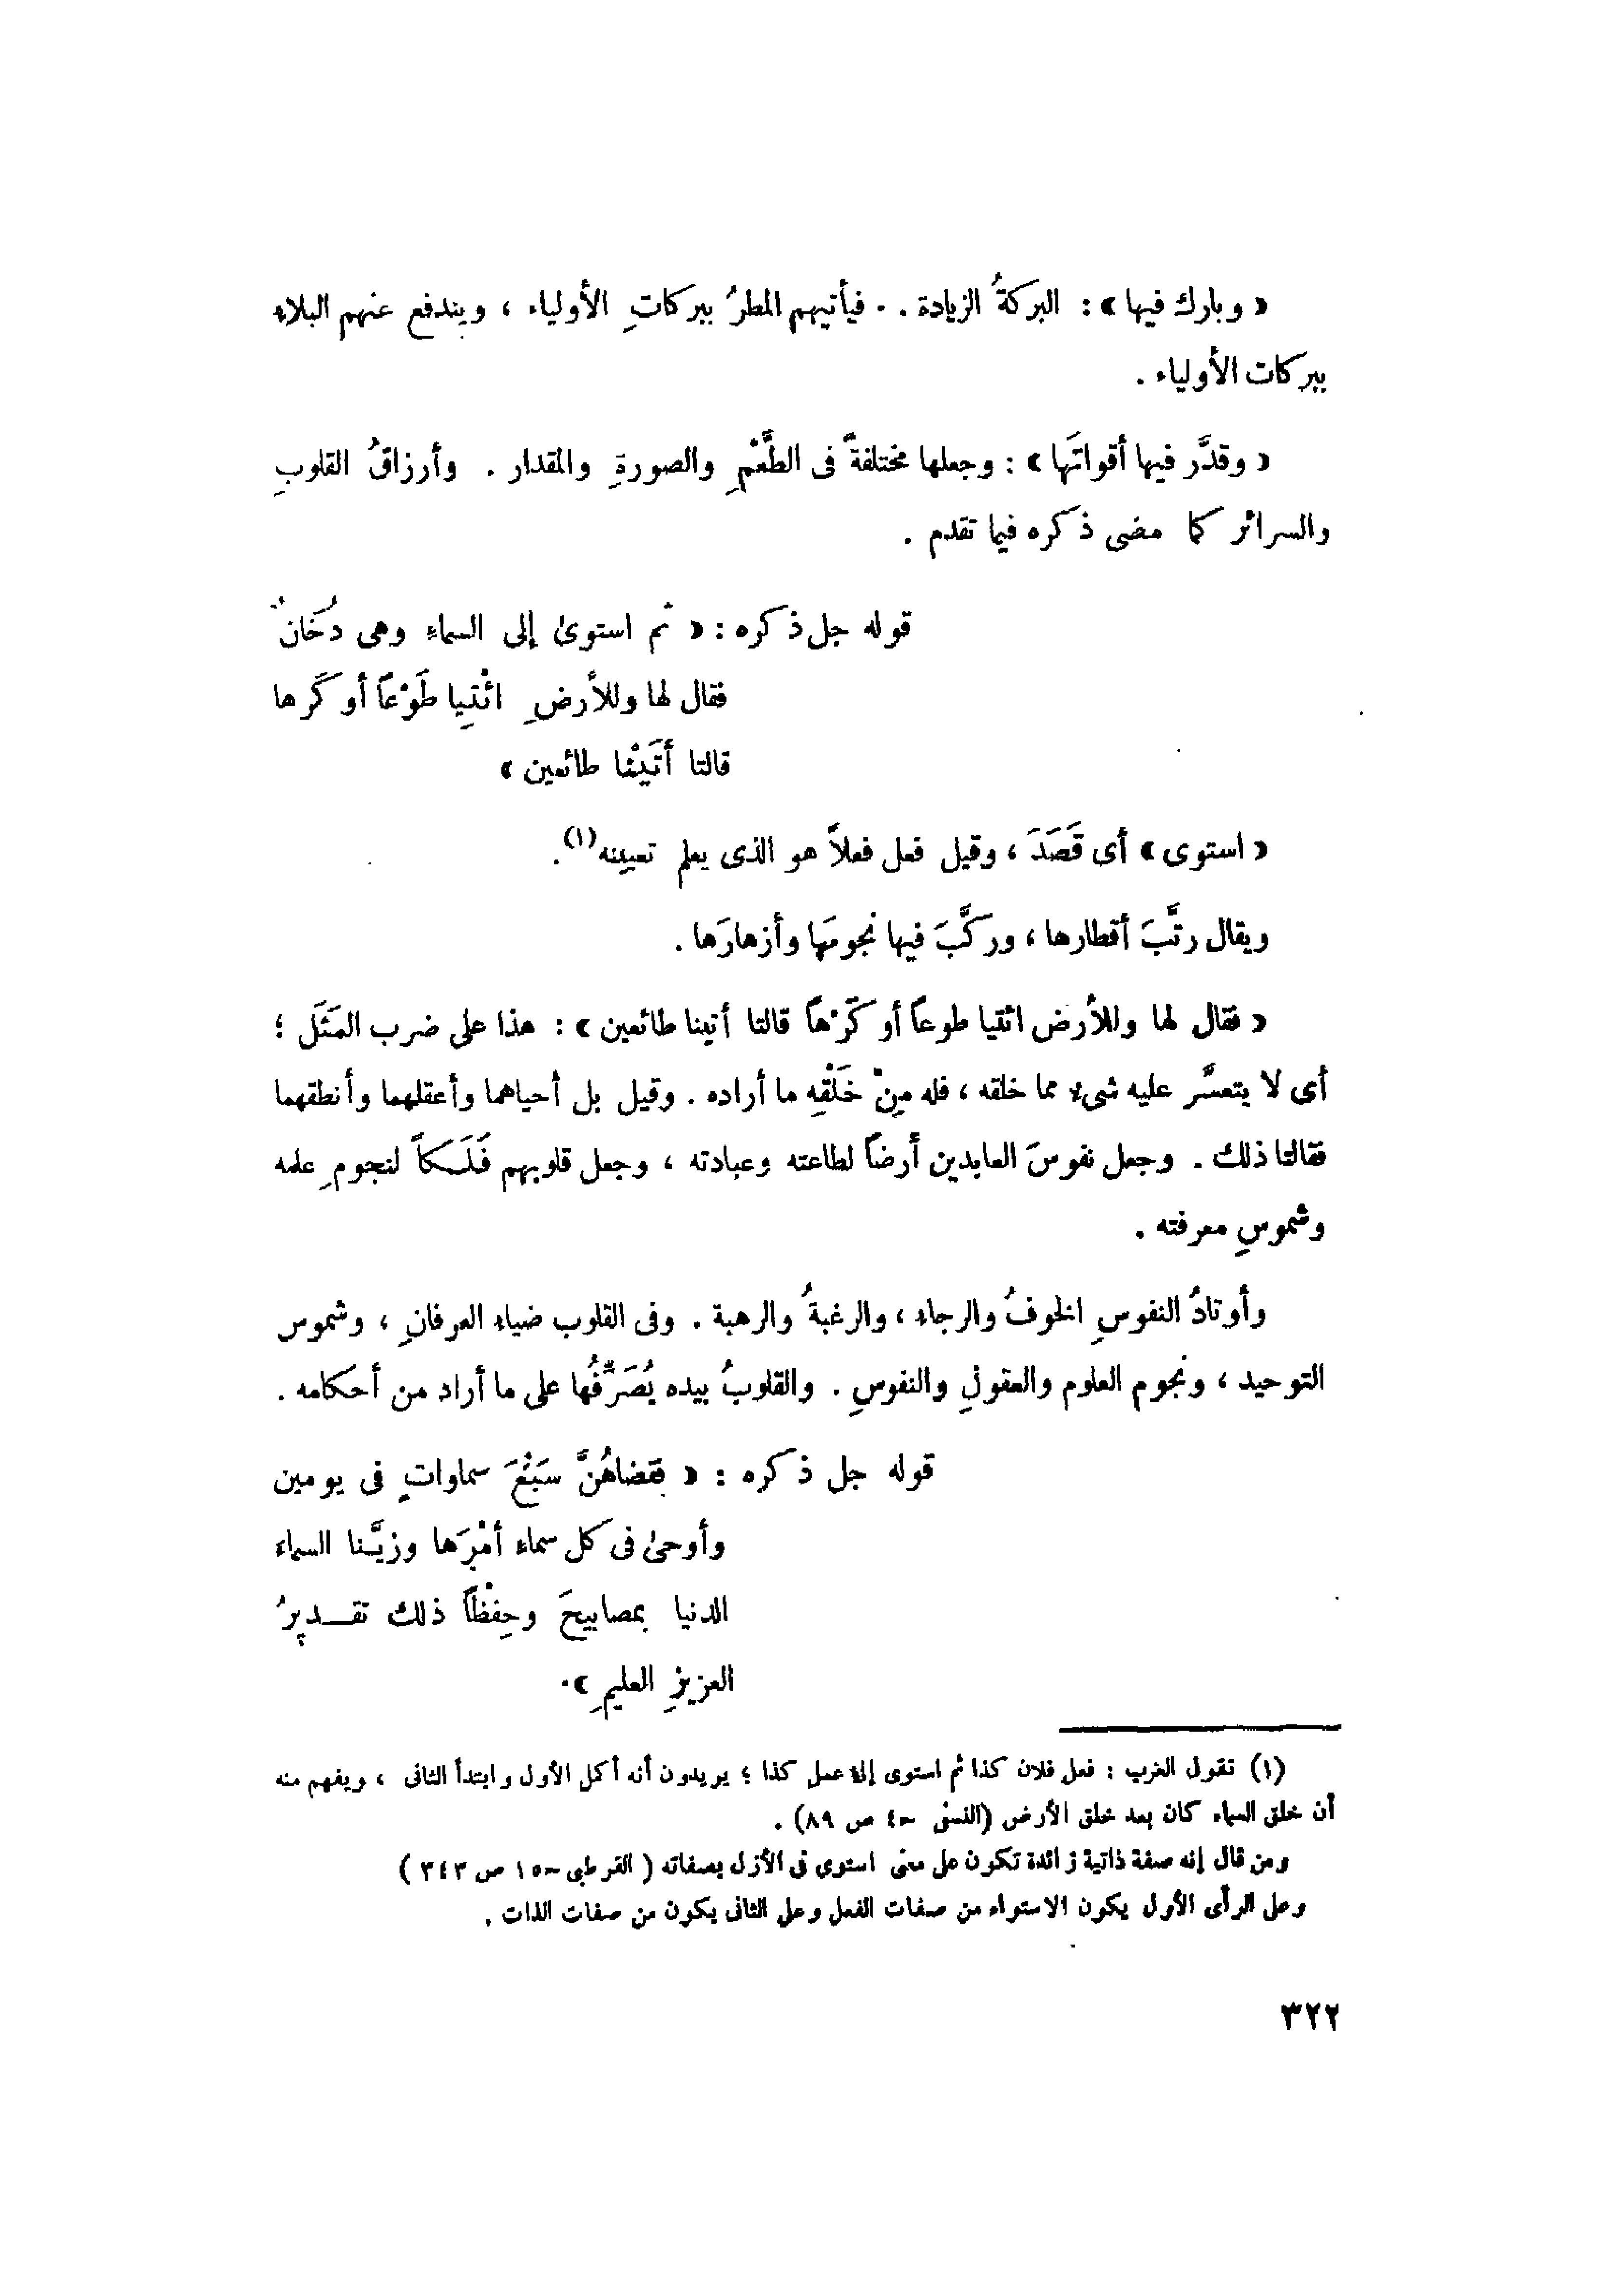 « وبارك فيها » : البركةُ الزيادة . . فيأتيهم المطرُ ببركاتِ الأولياء ، ويندفع عنهم البلاء
ببركات الأولياء .
« وقدَّر فيها أقواتَها » : وجعلها مختلفةً فى الطَّعْمِ والصورةِ والمقدار . وأرزاقُ القلوبِ
والسرائر كما مضى ذكره فيما تقدم .
قوله جل ذكره : « ثم استوىٰ إلى السماءِ وهى دُخَانٌ
فقال لها وللأرضِ ائْتِيا طَوْعَاً أو كَرها
قالتا أَتَيْنا طائعين »
« استوى » أى قَصَدَ ، وقيل فعل فعلاً هو الذى يعلم تعيينه(١).
ويقال رتَّبَ أقطارها ، وركَّبَ فيها نجومَها وأزهارَها .
« فقال لها وللأرض ائتيا طوعاً أو كَرْهاً قالتا أتينا طائعين » : هذا على ضرب المَثَل ؛
أى لا يتعسَّر عليه شىء مما خلقه ، فله مِنْ خَلْقِه ما أراده . وقيل بل أحياهما وأعقلهما وأنطقهما
فقالتا ذلك . وجعل نفوسَ العابدين أرضاً لطاعته وعبادته ، وجعل قلوبهم فَلَكاً لنجومِ علمه
وشموسِ معرفته .
وأوتادُ النفوسِ الخوفُ والرجاء ، والرغبةُ والرهبة . وفى القلوب ضياء العرفانِ ، وشموس
التوحيد ، ونجوم العلوم والعقولِ والنفوسِ . والقلوبُ بيده يُصَرِّفُها على ما أراد من أحكامه .
قوله جل ذكره : « فقضاهُنَّ سَبْعَ سماواتٍ فى يومين
وأوحىٰ فى كل سماء أمْرَها وزيَّنا السماء
الدنيا بمصابيحَ وحِفْظاً ذلك تقـديرُ
العزيزِ العليمِ ».
(١) تقول العرب : فعل فلان كذا ثم استوى إلى عمل كذا ؛ يريدون أنه أكمل الأول وابتدأ الثانى ، ويفهم منه
أن خلق السماء كان بعد خلق الأرض (النسفى حـ٤ ص ٨٩) .
ومن قال إنه صفة ذاتية زائدة تكون على معنى استوى فى الأزل بصفاته ( القرطبى حـ١٥ ص ٣٤٣ )
وعلى الرأى الأول يكون الاستواء من صفات الفعل وعلى الثانى يكون من صفات الذات .
٣٢٢